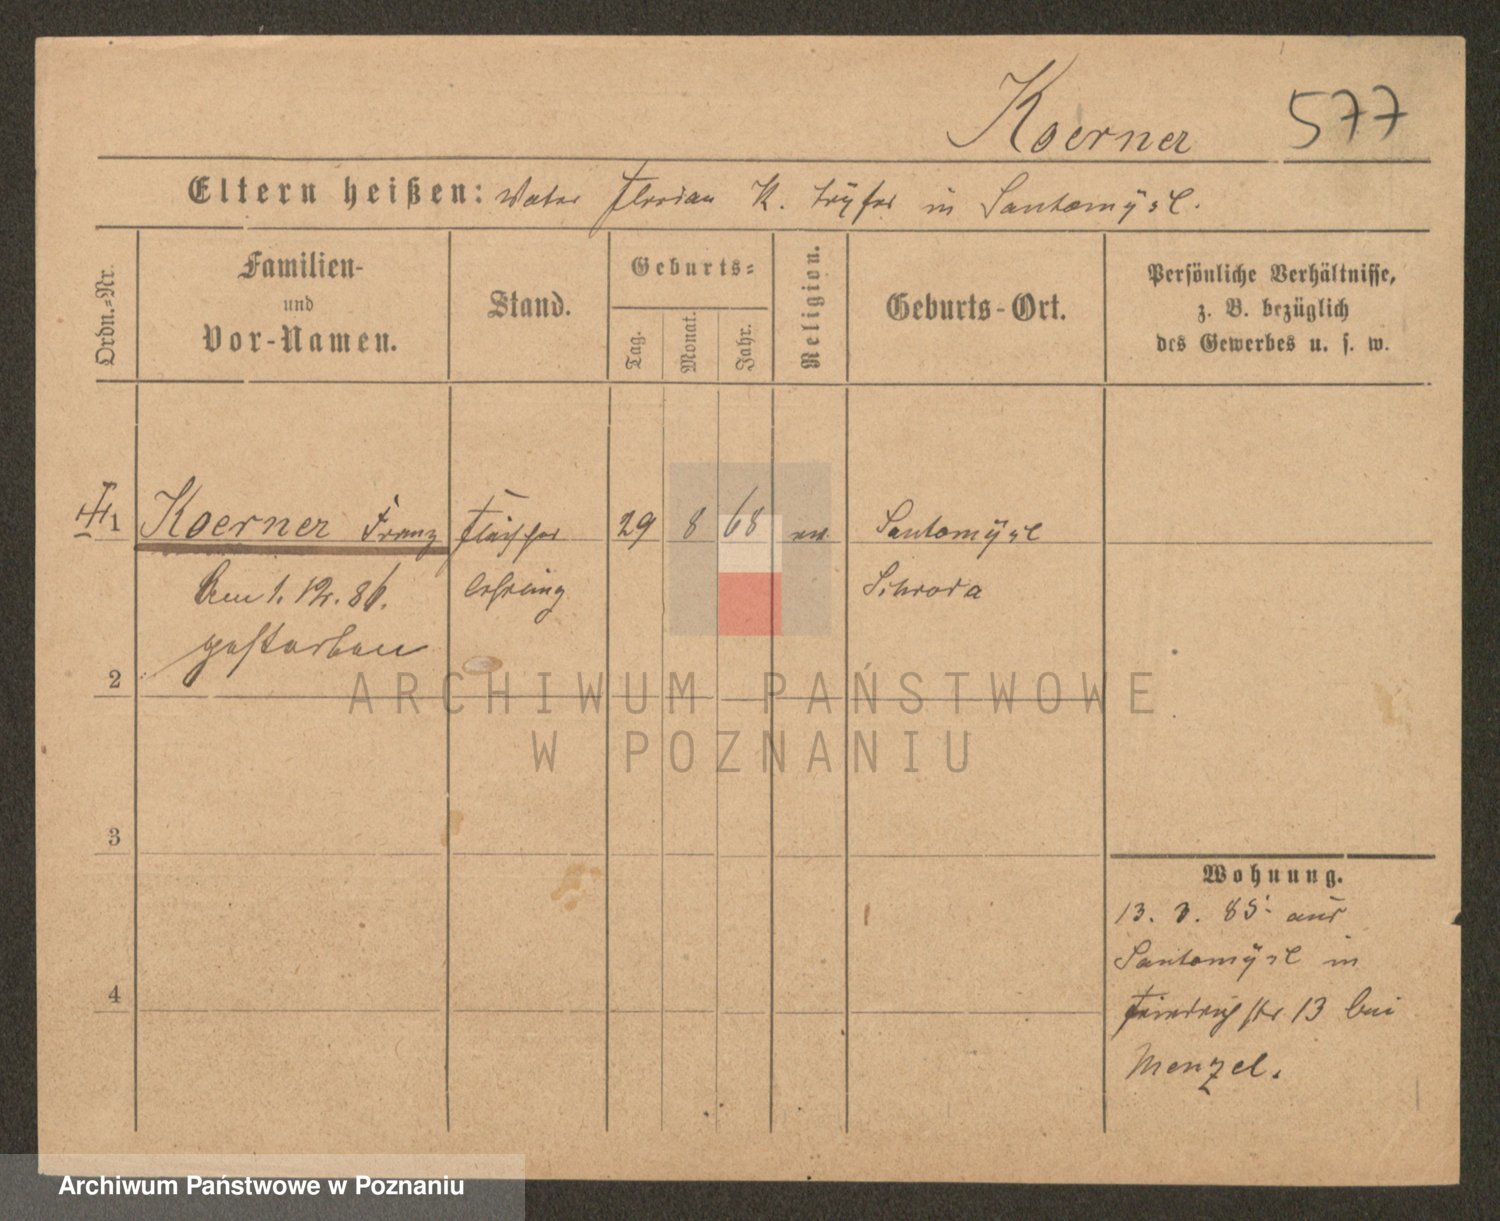 Koerner 577
Eltern heißen: Vater Florian K. Töpfer in Santomÿsl.
Ordn.-Nr.
Familien-
und
Vor-Namen.
Stand.
Geburts-
Tag.
Monat.
Jahr.
Religion.
Geburts-Ort.
Persönliche Verhältnisse,
z. B. bezüglich
des Gewerbes u. s. w.
1 Koerner Franz Fleischer 29 8 68 ev. Santomÿsl
lehrling Schroda
Am 1. 12. 86.
gestorben
2
3
4
Wohnung.
13. 3. 85. aus
Santomÿsl in
Friedrichstr 13 bei
Menzel.
ARCHIWUM PAŃSTWOWE
W POZNANIU
Archiwum Państwowe w Poznaniu